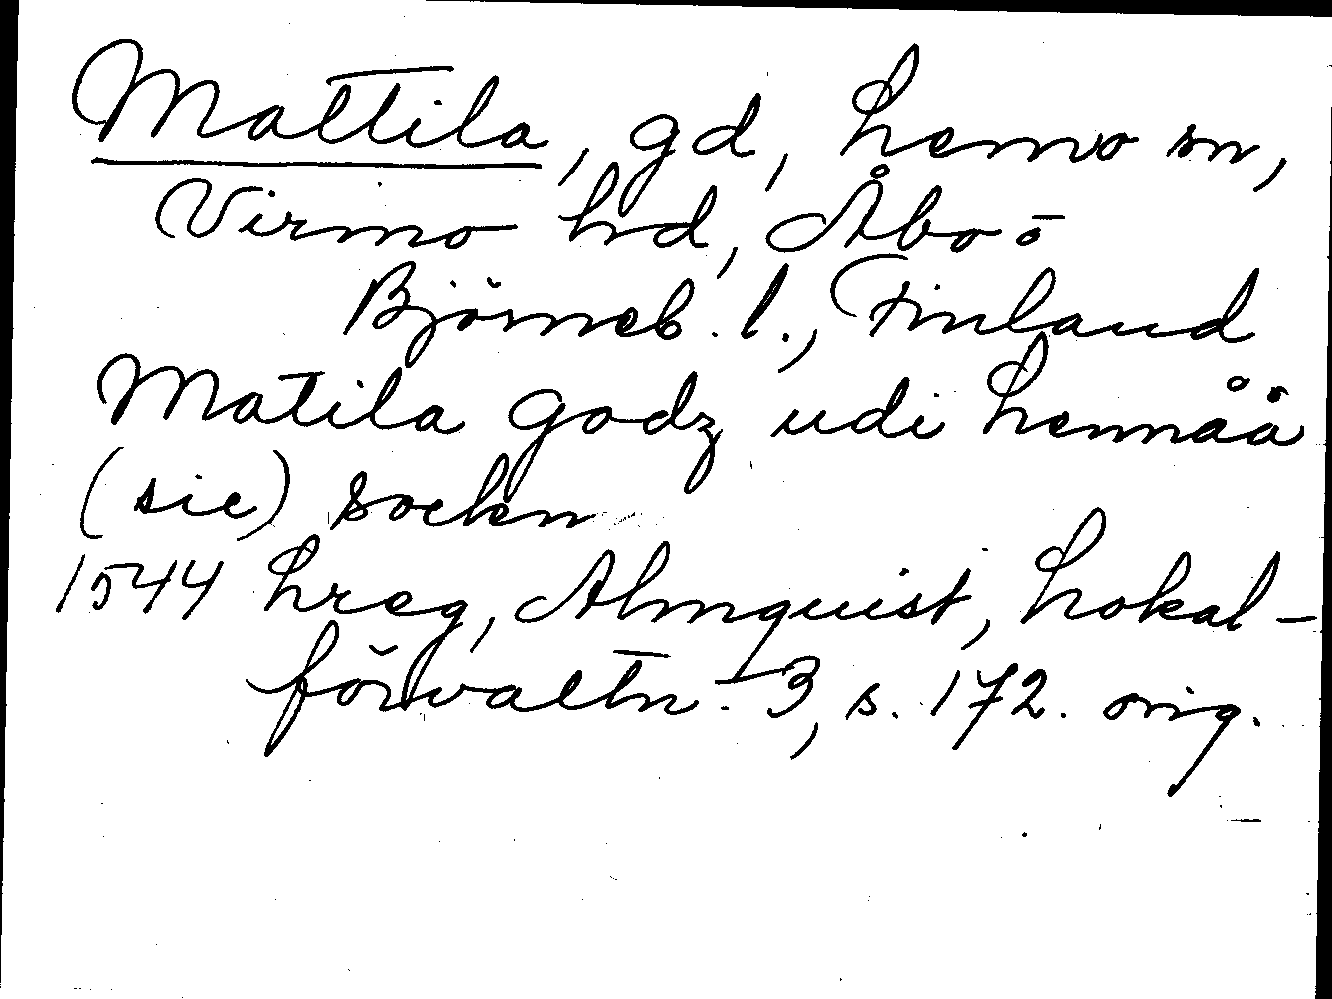 Mattila, gd, Lemo sn,
Virmo hd, Åbo o
Björneb. l., Finland
Matila godz udi Lennåå
(sic) sockn
1544 Lreg, Almquist, Lokal-
förvaltn. 3, s. 172. orig.